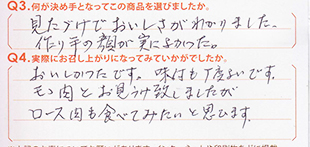 Q3.何が決め手となってこの商品を選びましたか。
見たづけでおいしさがわかりました、
作り手の顔が実によかった。
Q4.実際にお召し上がりになってみていかがでしたか。
おいしかったです。味付も丁度よいです。
モモ肉とお見うけ致しましたが
ロース肉も食べてみたいと思ひます。